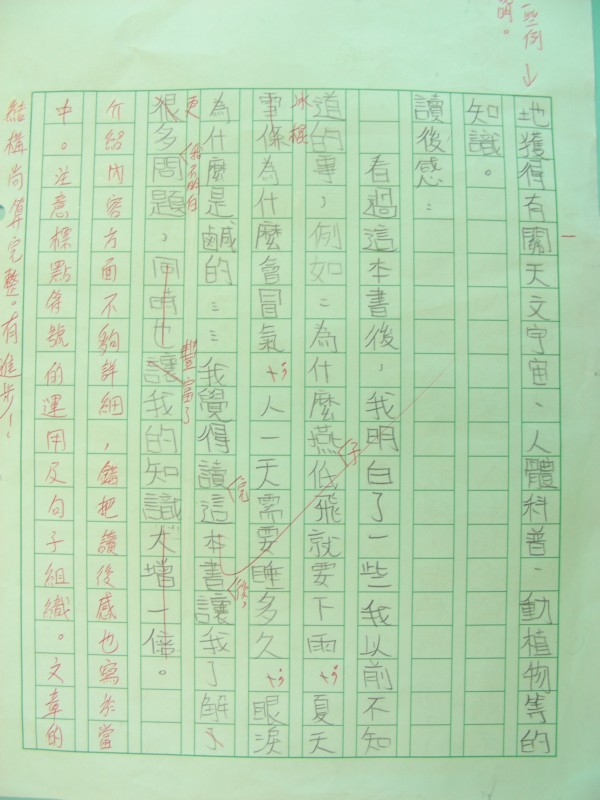 一些例
明。
地獲得有關天文宇宙、人體科普、動植物等的
知識。
讀後感：
看過這本書後，我明白了一些我以前不知
道的事，例如：為什麼燕低飛就要下雨 夏天
子
冰棍
雪條為什麼會冒氣 人一天需要睡多久 眼淚
為什麼是鹹的……我覺得讀這本書讓我了解了
完
後，
更
豐富了
很多問題，同時也讓我的知識大增一倍。
介紹內容方面不夠詳細，錯把讀後感也寫於當
中。注意標點符號的運用及句子組織。文章的
結構尚算完整。有進步！